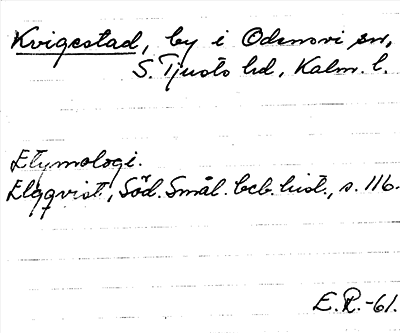 Kvigestad, by i Odensvi sn,
S. Tjusts hd, Kalm. l.
Etymologi.
Elgqvist, Söd. Smål. beb. hist., s. 116.
E.R.-61.